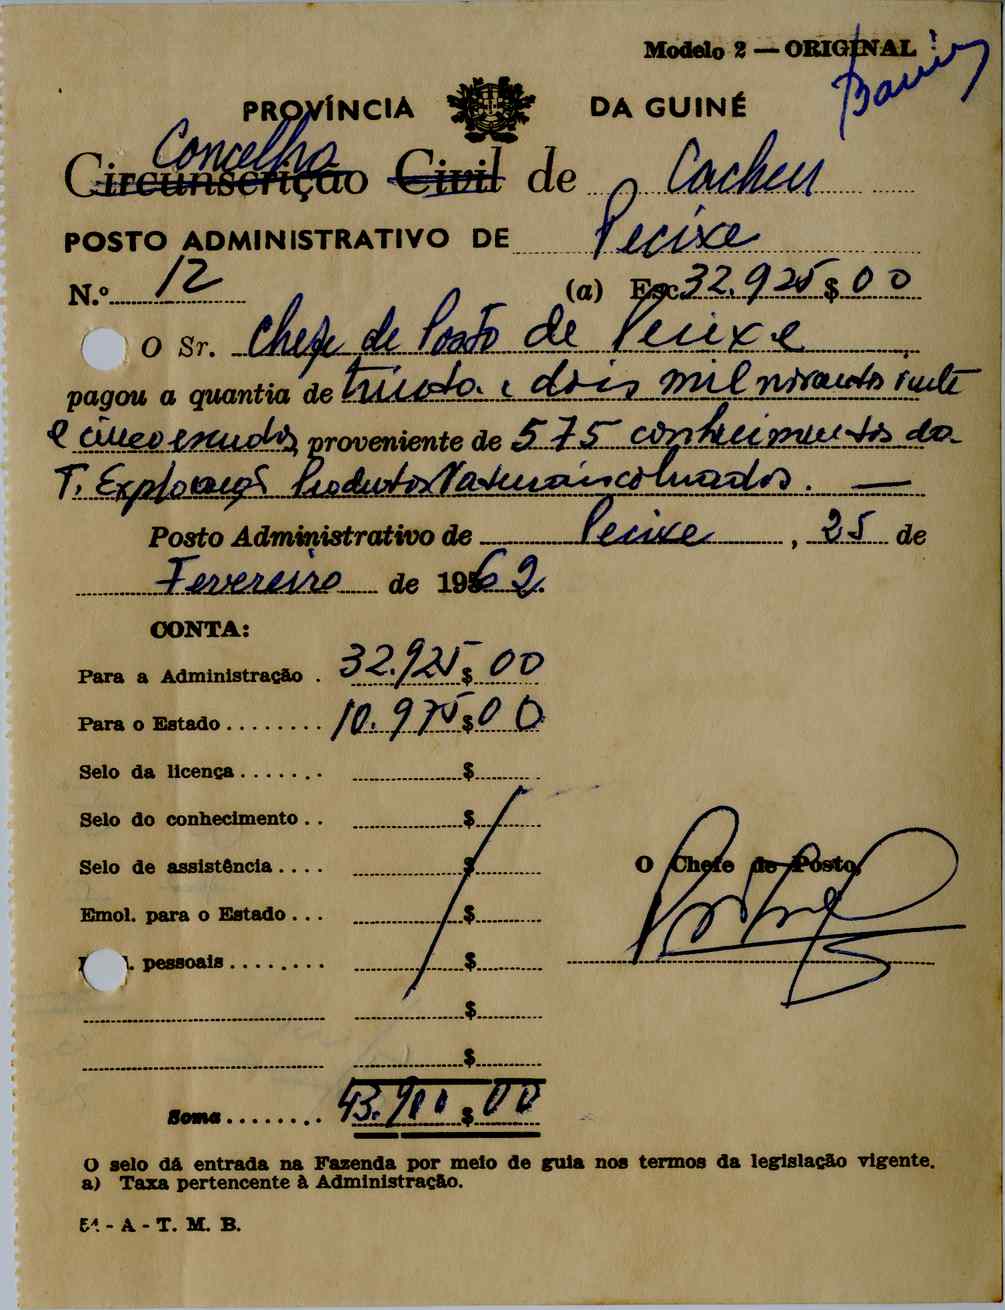 Modelo 2 — ORIGINAL
PROVÍNCIA DA GUINÉ
Concelho
Circunscrição Civil de Cacheu
POSTO ADMINISTRATIVO DE Pecixe
N.º 12 (a) Esc. 32.925$00
O Sr. Chefe de Posto de Pecixe
pagou a quantia de trinta e dois mil novecentos vinte
e cinco escudos, proveniente de 575 conhecimentos da
T. Exploração Produtos Naturais colmados. —
Posto Administrativo de Pecixe, 25 de
Fevereiro de 1962.
CONTA:
Para a Administração . 32.925$00
Para o Estado ........ 10.975$00
Selo da licença ....... $
Selo do conhecimento .. $
Selo de assistência .... $
O Chefe de Posto,
Emol. para o Estado ... $
pessoais ........ $
$
$
Soma ........ 43.900$00
O selo dá entrada na Fazenda por meio de guia nos termos da legislação vigente.
a) Taxa pertencente à Administração.
54 - A - T. M. B.